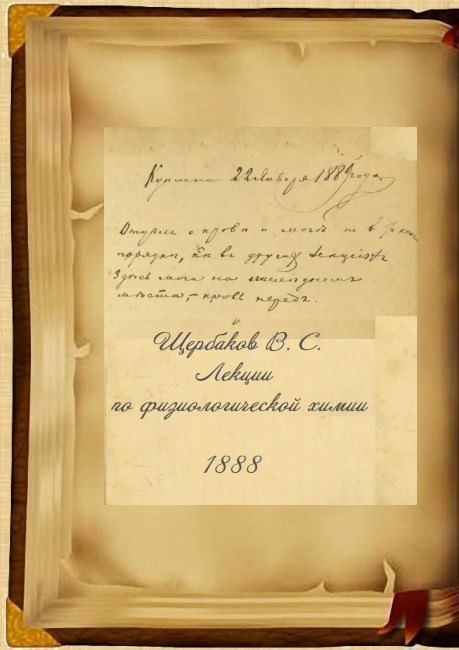 Куплена 22 Января 1889 года
Отделъ о крови и мочѣ не в
порядкѣ, въ другихъ Лекціяхъ
Здѣсь моча на
мѣста, кровь передъ.
Щербаков В. С.
Лекции
по физиологической химии
1888